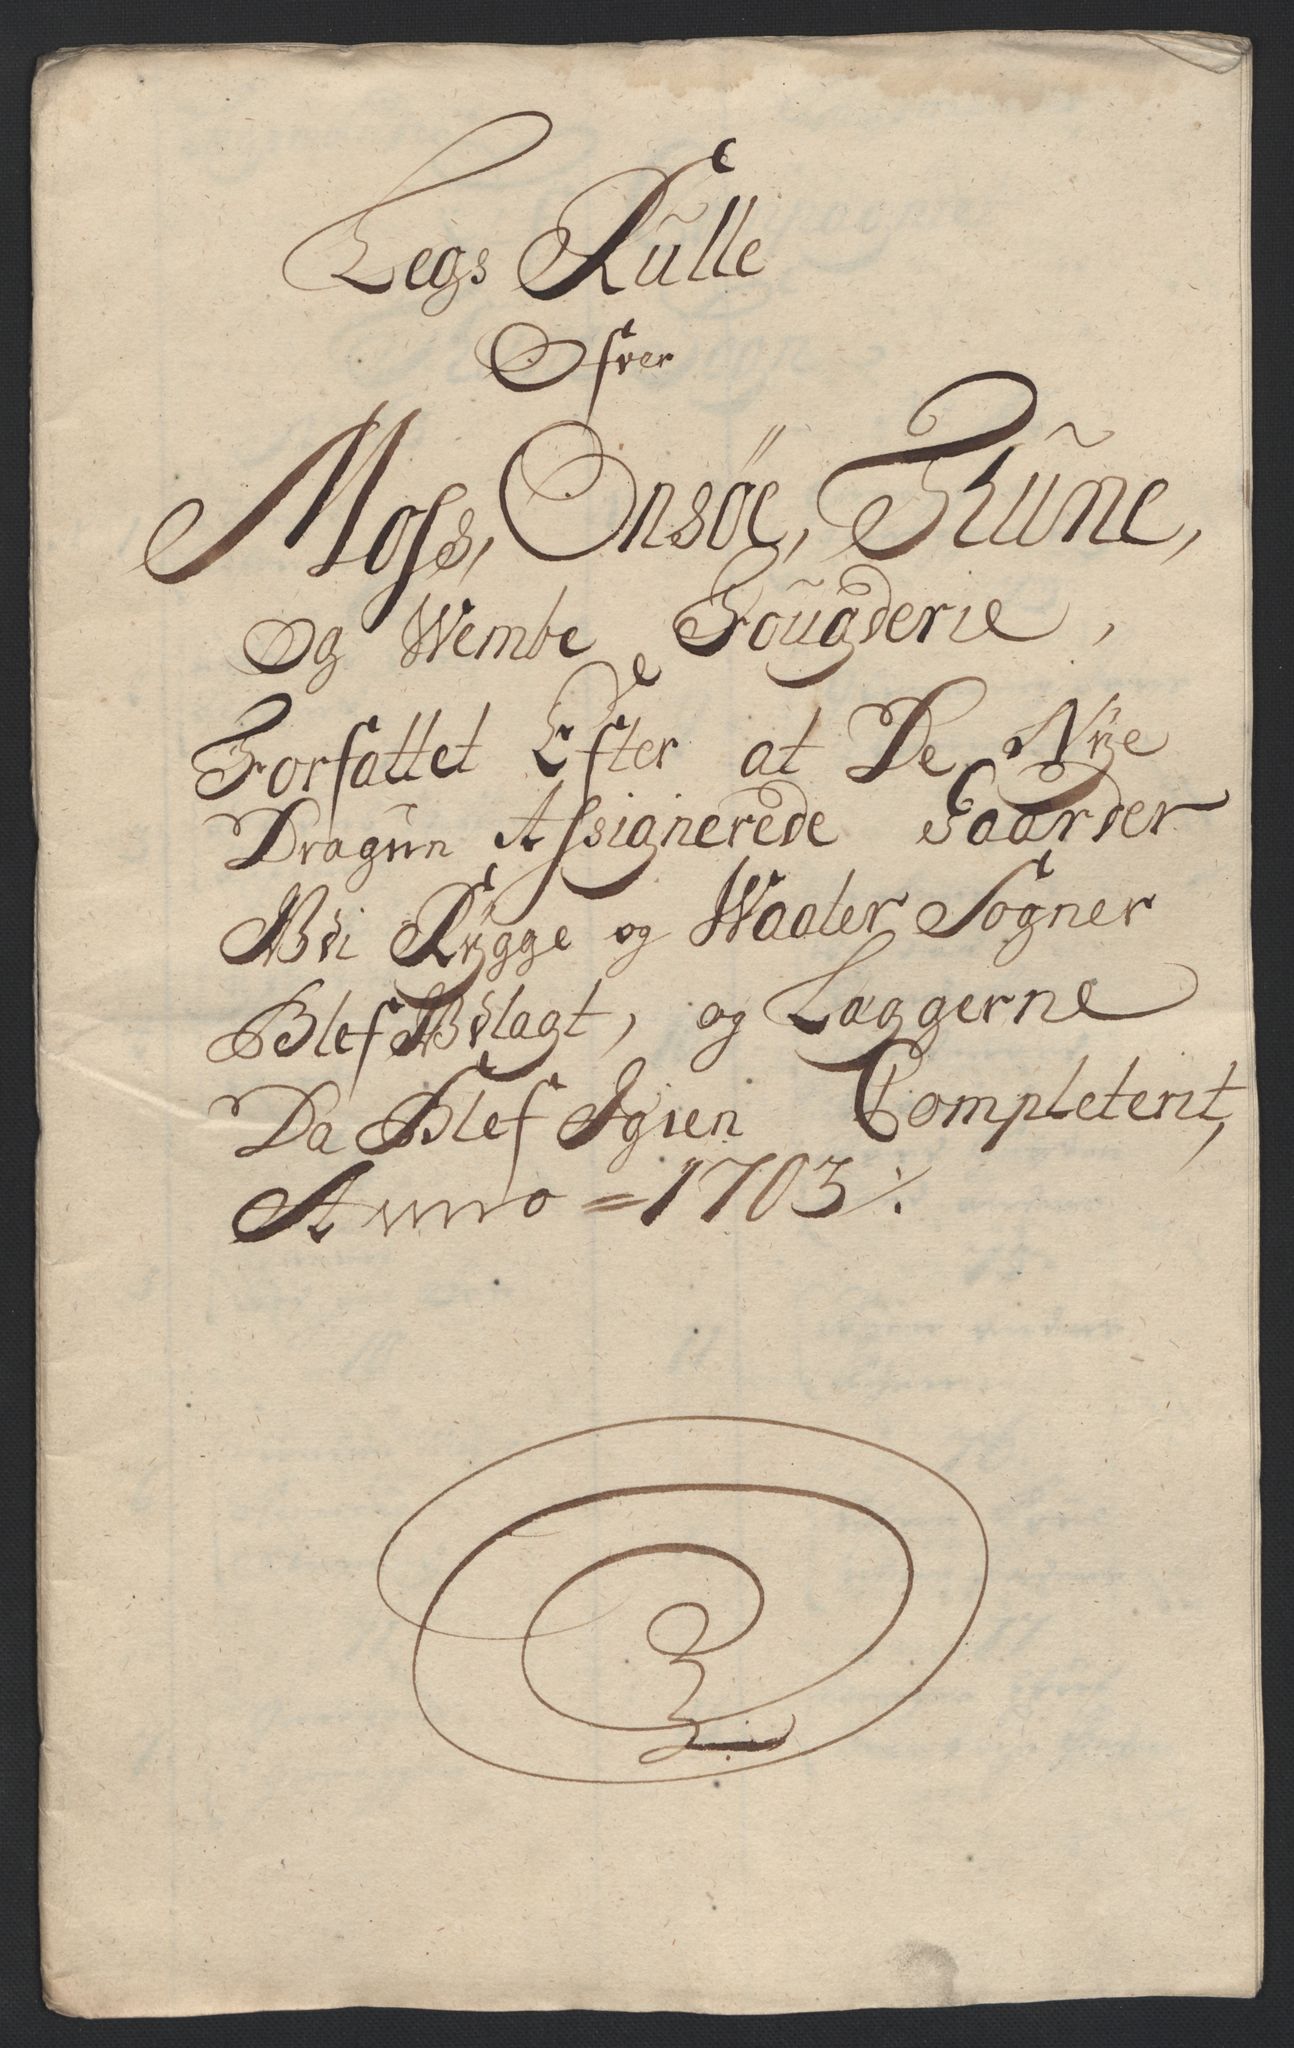 Legs Rulle
Ofver
Moss, Onsøe, Thune,
og Wembe Fougderie,
Forfattet Efter at De Nye
Dragun Assignerede Gaarder
Udi Rygge og Waaler Sogner
Blef Udlagt, og Læggerne
Da Blef Igien Completerit,
Anno = 1703 ⁒